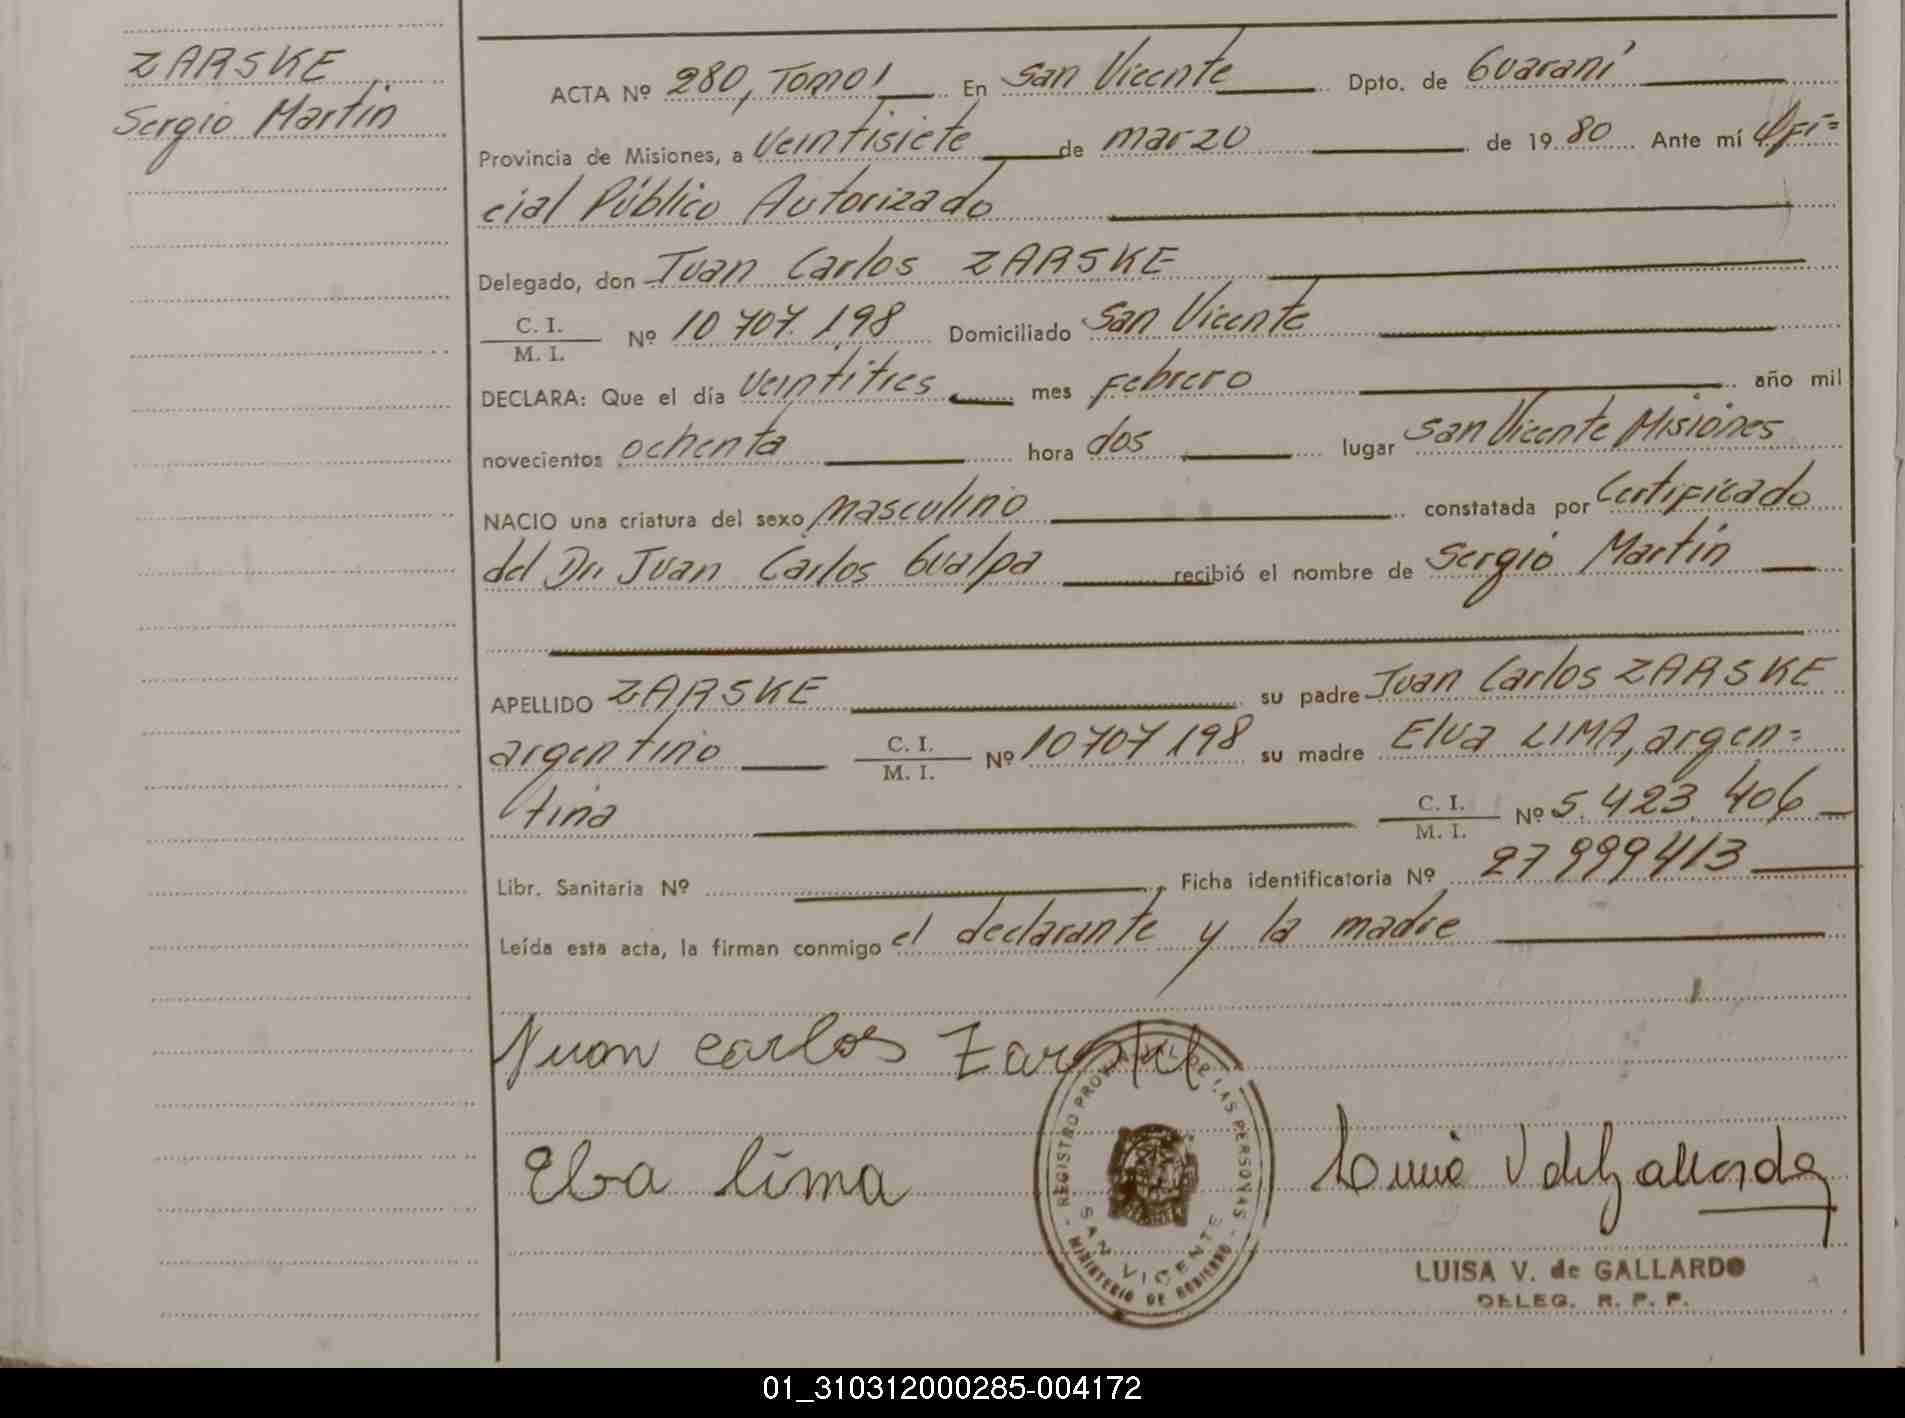 ZARSKE
Sergio Martin
ACTA Nº 280, Tomo I En San Vicente Dpto. de Guaraní
Provincia de Misiones, a veintisiete de marzo de 1980 Ante mí Ofi=
cial Público Autorizado
Delegado, don Juan Carlos ZARSKE
C. I.
M. I. Nº 10 707.198 Domiciliado San Vicente
DECLARA: Que el día veintitres mes febrero año mil
novecientos ochenta hora dos lugar San Vicente Misiones
NACIO una criatura del sexo masculino constatada por Certificado
del Dr. Juan Carlos Gualpa recibió el nombre de Sergio Martin
APELLIDO ZARSKE su padre Juan Carlos ZARSKE
argentino C. I.
M. I. Nº 10707198 su madre Elva LIMA, argen=
tina C. I.
M. I. Nº 5.423.406
Libr. Sanitaria Nº Ficha identificatoria Nº 27999413
Leída esta acta, la firman conmigo el declarante y la madre
Juan carlos Zarske
Elva lima
Luisa V de Gallardo
REGISTRO PROVINCIAL DE LAS PERSONAS
SAN VICENTE
MINISTERIO DE GOBIERNO
LUISA V. de GALLARDO
DELEG. R. P. P.
01_310312000285-004172